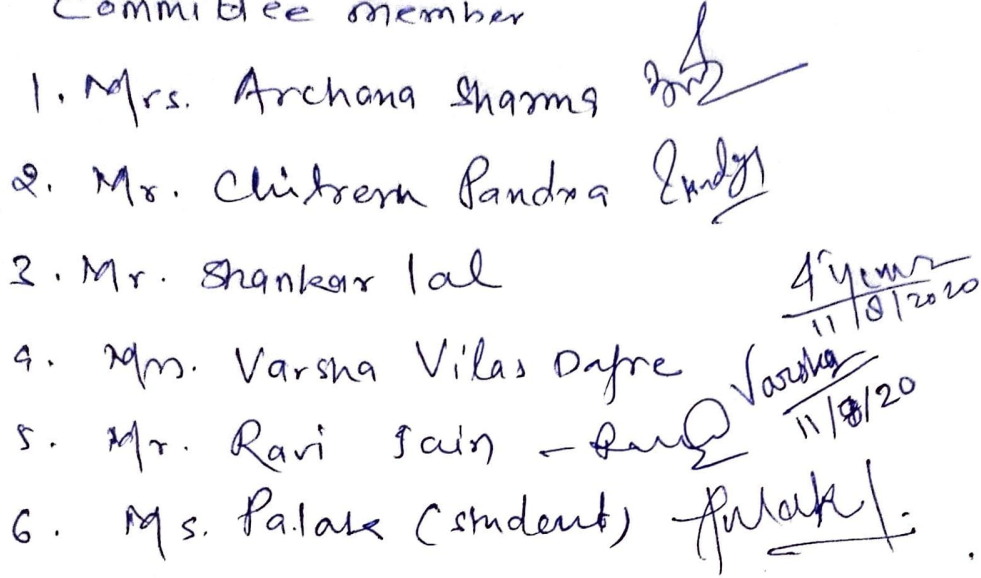 Committee member
1. Mrs. Archana Sharma
2. Mr. Chitresh Pandya
3. Mr. Shankar lal
11/8/2020
4. Mrs. Varsha Vilas Dafre Varsha
11/8/20
5. Mr. Ravi Jain -
6. Ms. Palak (student) Palak